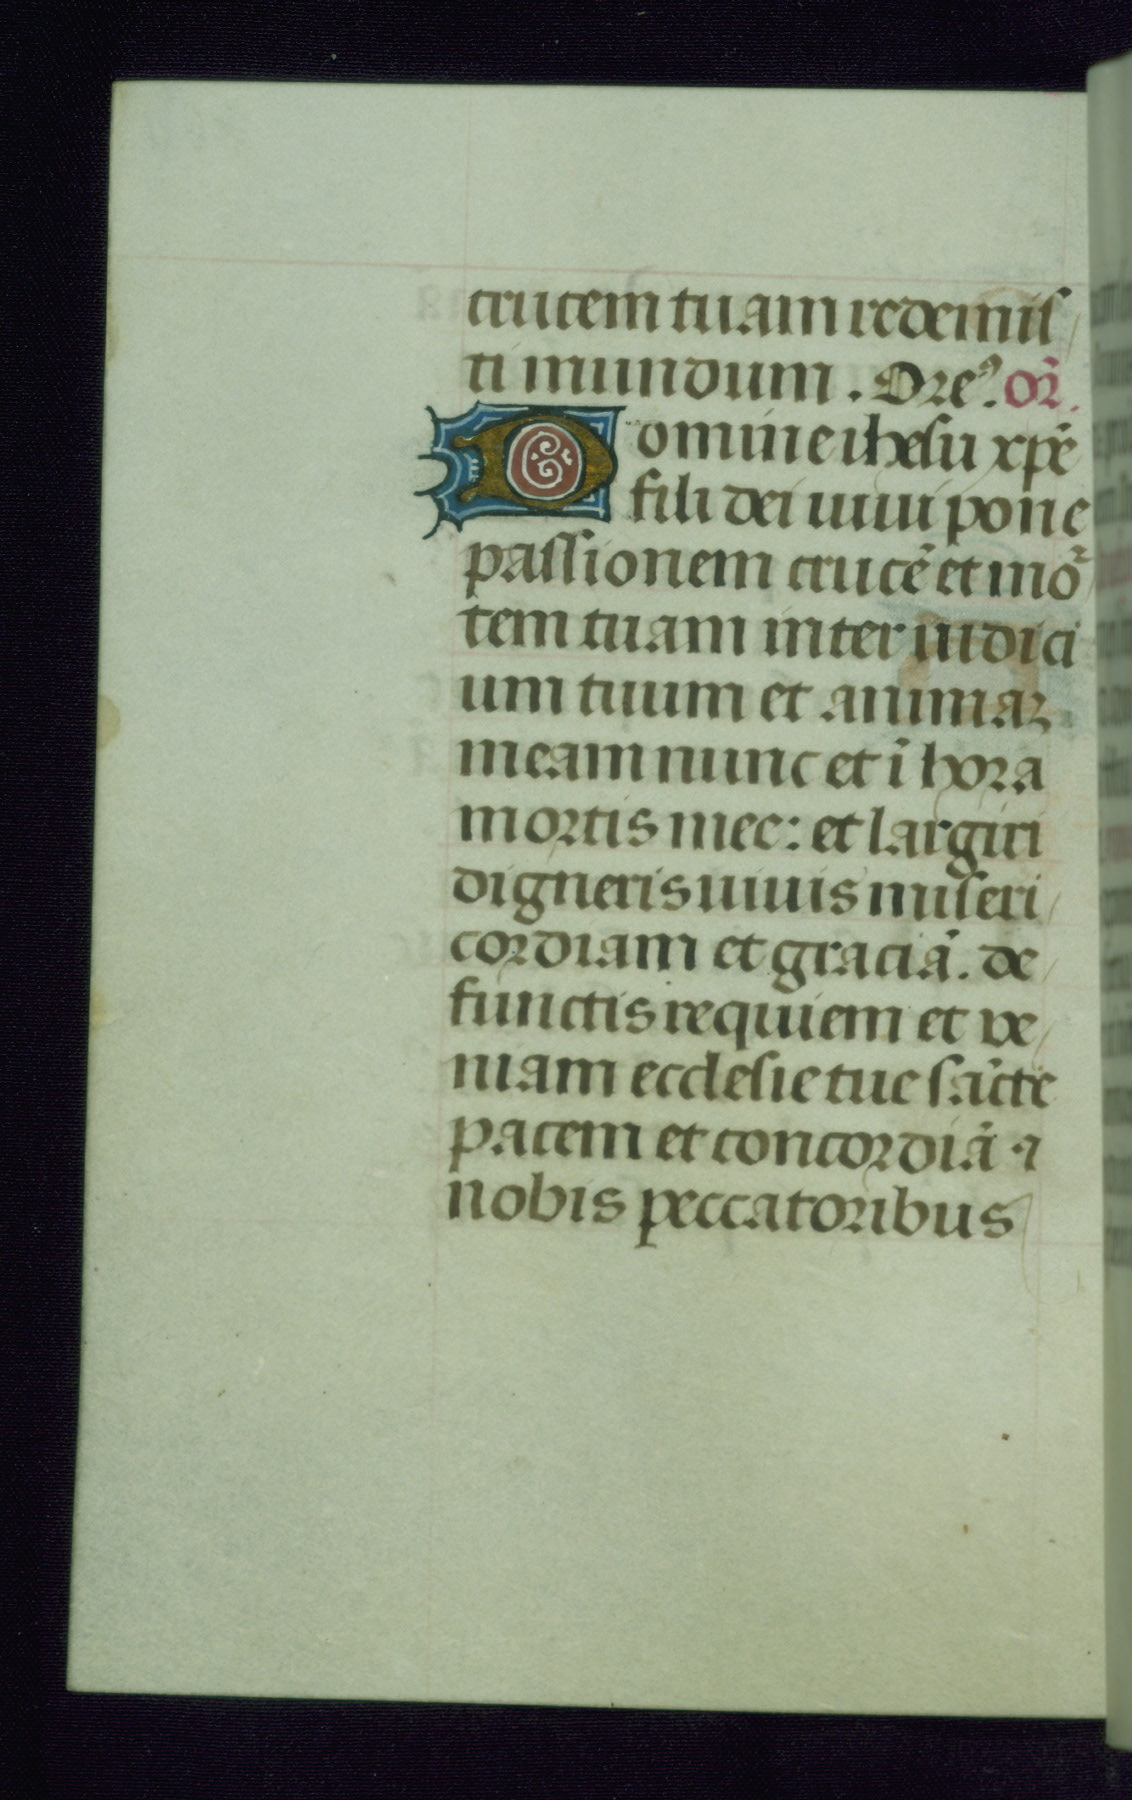 crucem tuam redemis
ti mundum. Oreꝰ. or̃.
Domine ihesu xp̃e
fili dei uiui pone
passionem crucẽ et mor̃
tem tuam inter iudici
um tuum et animaꝫ
meam nunc et ĩ hora
mortis mee: et largiri
digneris uiuis miseri
cordiam et graciã. de
functis requiem et ve
niam ecclesie tue sãcte
pacem et concordiã ⁊
nobis peccatoribus